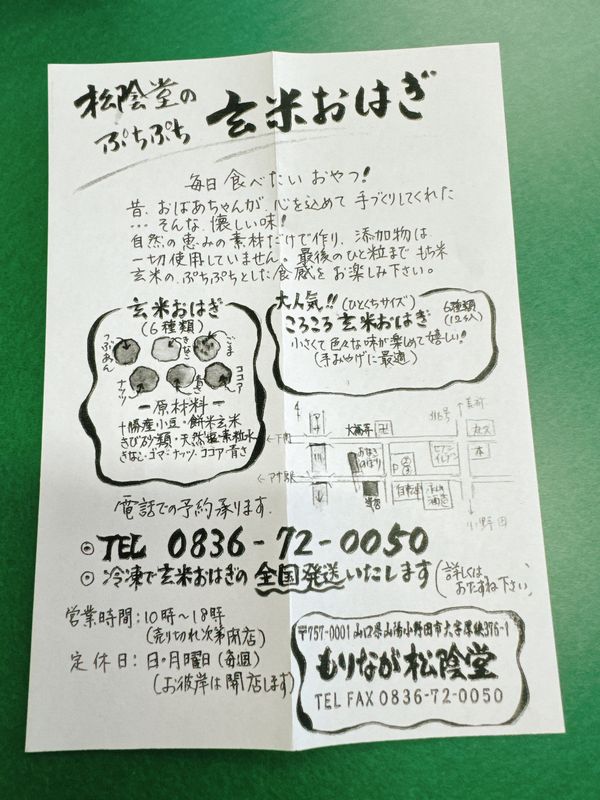 松陰堂の
ぷちぷち 玄米おはぎ
毎日食べたいおやつ!
昔、おばあちゃんが、心を込めて手づくりしてくれた
…そんな、懐しい味!
自然の恵みの素材だけで作り、添加物は
一切使用していません。最後のひと粒まで もち米
玄米の、ぷちぷちとした食感をお楽しみ下さい。
玄米おはぎ
(6種類)
つぶあん
きなこ
ごま
ナッツ
青さ
ココア
ー原材料ー
十勝産小豆・餅米玄米
きび砂糖・天然塩・素粒水
きなこ・ゴマ・ナッツ・ココア・青さ
大人気!!(ひとくちサイズ)
ころころ玄米おはぎ
6種類
(12ケ入)
小さくて色々な味が楽しめて嬉しい!!
(手みやげに最適)
大福寺 卍
美祢
ガス
←下関
おなぎ
のぼり
セブン
イレブン
本
←アサ駅
当店
自転車
P
小野田
電話での予約承ります。
◎TEL 0836-72-0050
◎冷凍で玄米おはぎの全国発送いたします(詳しくは
おたずね下さい)
営業時間:10時〜18時
(売り切れ次第閉店)
定休日:日・月曜日(毎週)
(お彼岸は開店します)
〒757-0001 山口県山陽小野田市大字厚狭376-1
もりなが松陰堂
TEL FAX 0836-72-0050